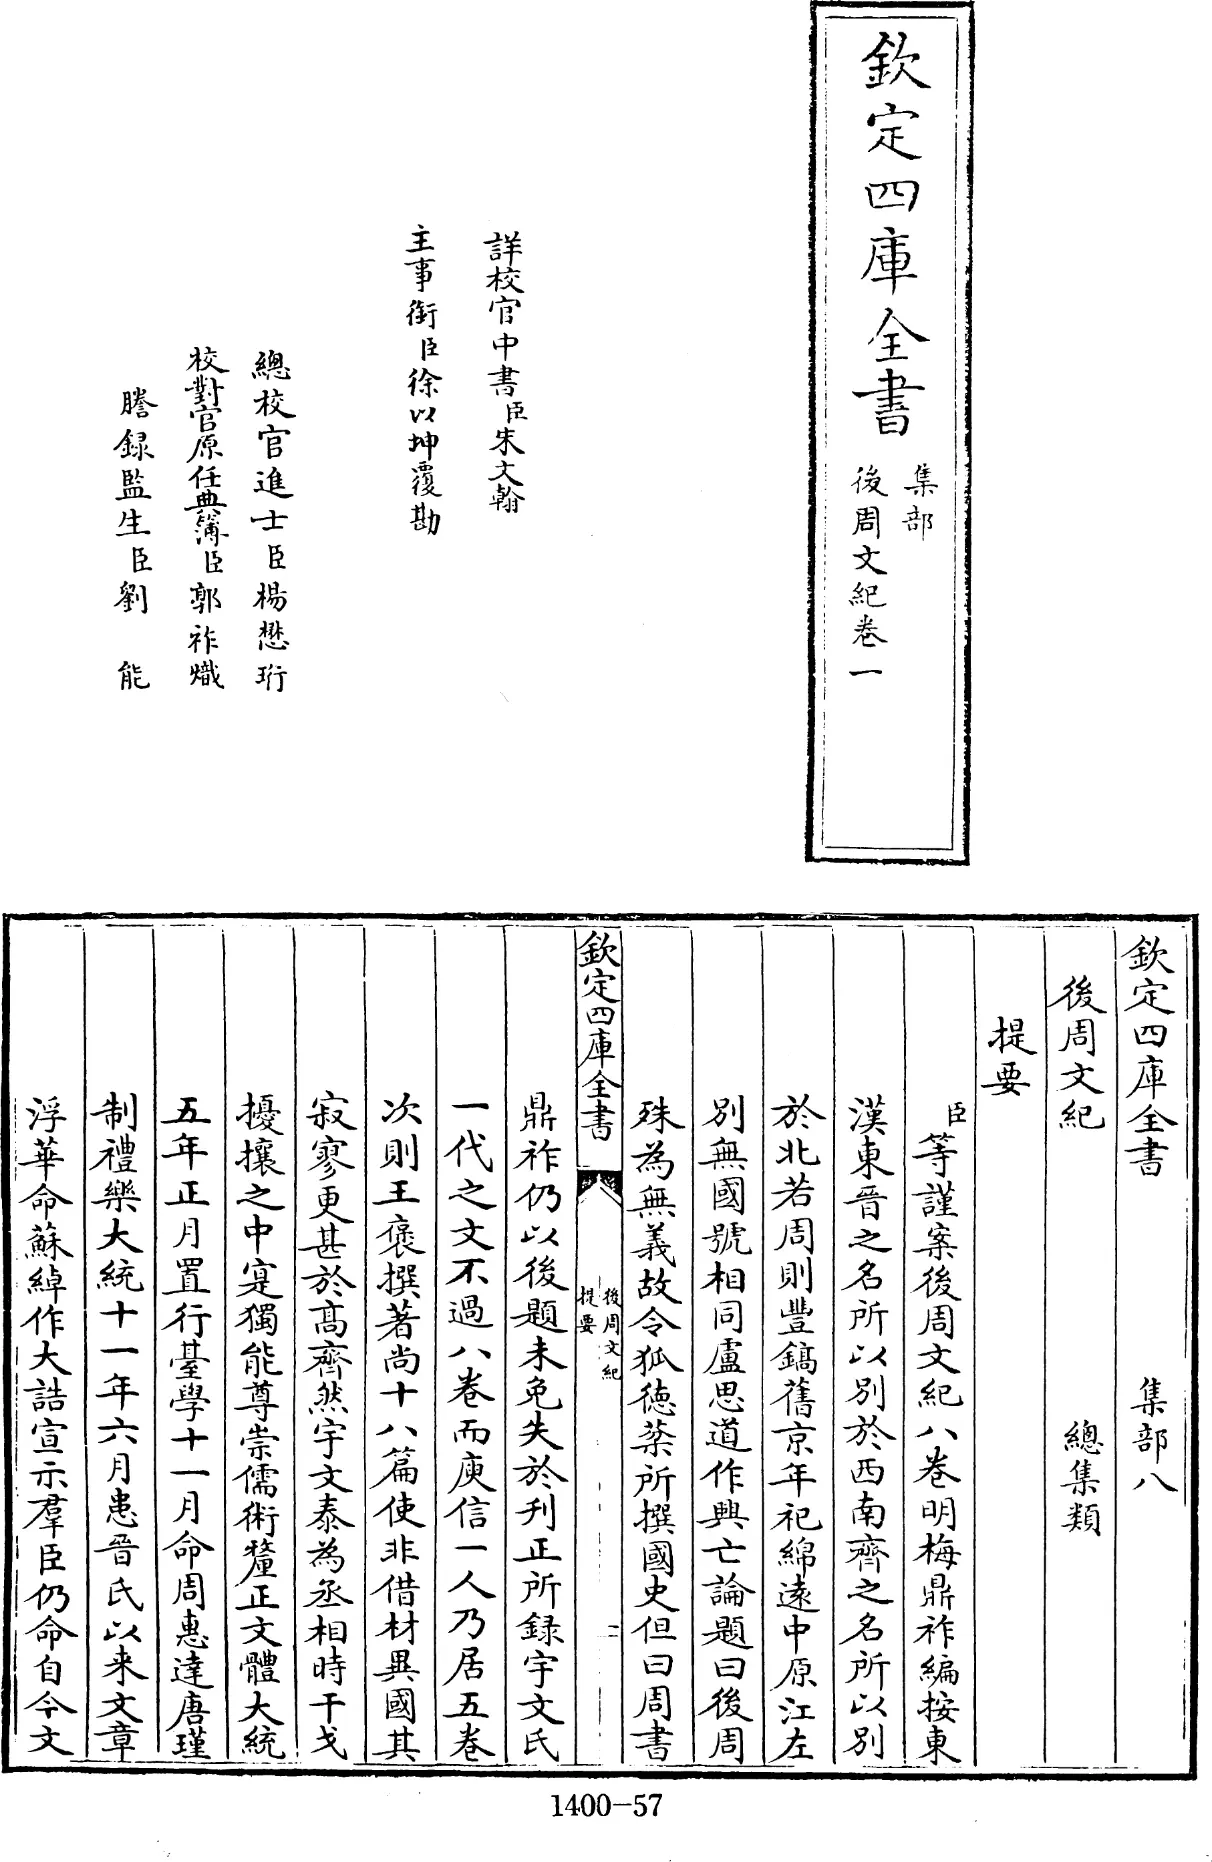 欽定四庫全書
集部
後周文紀卷一
詳校官中書臣朱文翰
主事銜臣徐以坤覆勘
總校官進士臣楊懋珩
校對官原任典簿臣郭祚熾
謄録監生臣劉能
欽定四庫全書 集部八
後周文紀 總集類
提要
臣等謹案後周文紀八卷明梅鼎祚編按東
漢東晉之名所以別於西南齊之名所以別
於北若周則豐鎬舊京年祀綿遠中原江左
別無國號相同盧思道作興亡論題曰後周
殊為無義故令狐徳棻所撰國史但曰周書
欽定四庫全書
後周文紀
提要
二
鼎祚仍以後題未免失於刋正所録宇文氏
一代之文不過八卷而庾信一人乃居五卷
次則王褒撰著尚十八篇使非借材異國其
寂寥更甚於髙齊然宇文泰為丞相時干戈
擾攘之中寔獨能尊崇儒術釐正文體大統
五年正月置行臺學十一月命周惠達唐瑾
制禮樂大統十一年六月患晉氏以来文章
浮華命蘇綽作大誥宣示羣臣仍命自今文
1400-57